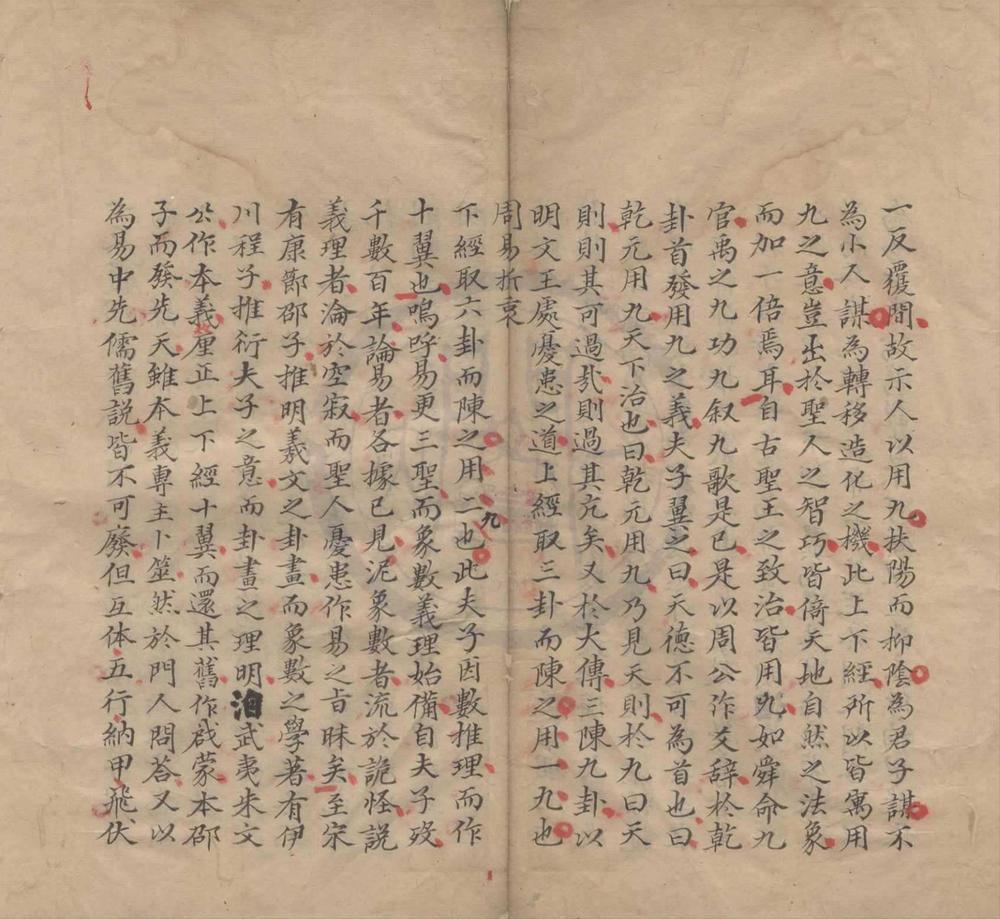 一反覆間故示人以用九扶陽而抑陰為君子謀不
為小人謀為轉移造化之機此上下經所以皆寓用
九之意豈出於聖人之智巧皆倚天地自然之法象
而加一倍焉耳自古聖王之致治皆用九如舜命九
官禹之九功九叙九歌是已是以周公作爻辞於乾
卦首發用九之義夫子翼之曰天德不可為首也曰
乾元用九天下治也曰乾元用九乃見天則於九曰天
則則其可過㢤則過其亢矣又於大傳三陳九卦以
明文王處憂患之道上經取三卦而陳之用一九也
周易折衷
下經取六卦而陳之用二九也此夫子因數推理而作
十翼也嗚呼易更三聖而象數義理始備自夫子歿
千數百年論易者各據已見泥象數者流於詭怪說
義理者淪於空寂而聖人憂患作易之旨昧矣至宋
有康節邵子推明羲文之卦畫而象數之學著有伊
川程子推衍夫子之意而卦畫之理明洎武夷朱文
公作本義厘正上下經十翼而還其舊作啟蒙本邵
子而發先天雖本義專主卜筮然於門人問答又以
為易中先儒舊說皆不可廢但互体五行納甲飛伏